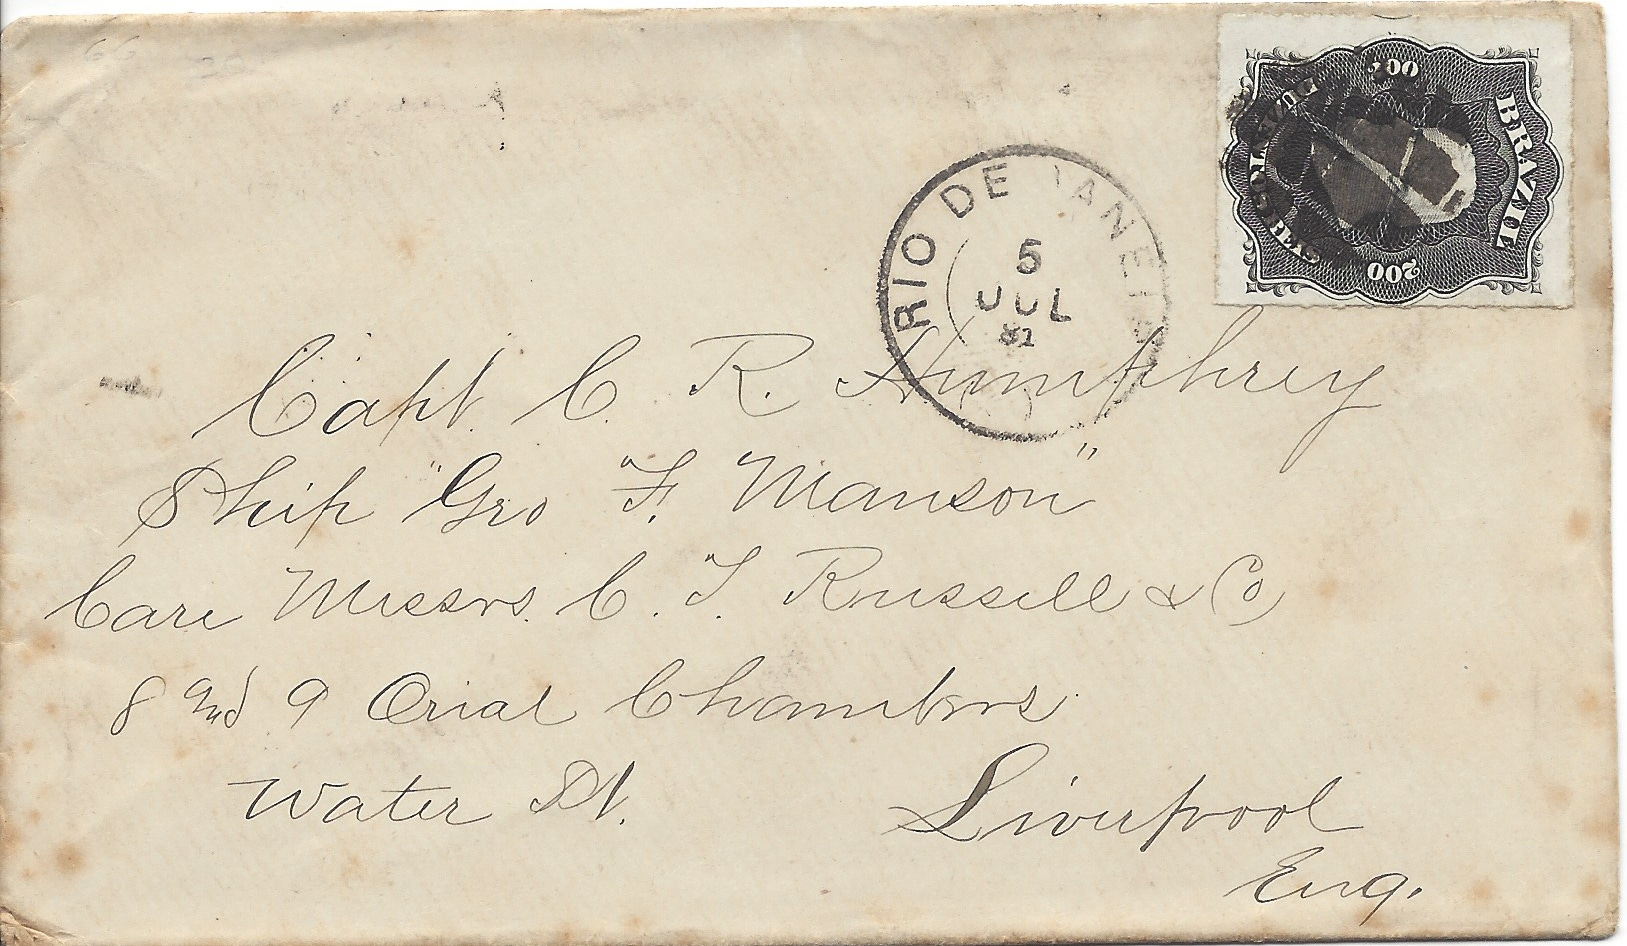 200
BRAZIL
DUZENTOS REIS
200
RIO DE JANEIRO
5
JUL
81
Capt. C. R. Humphrey
Ship "Geo F. Manson"
Care Messrs. C. T. Russell & Co
8 and 9 Orial Chambers
Water St.
Liverpool
Eng.